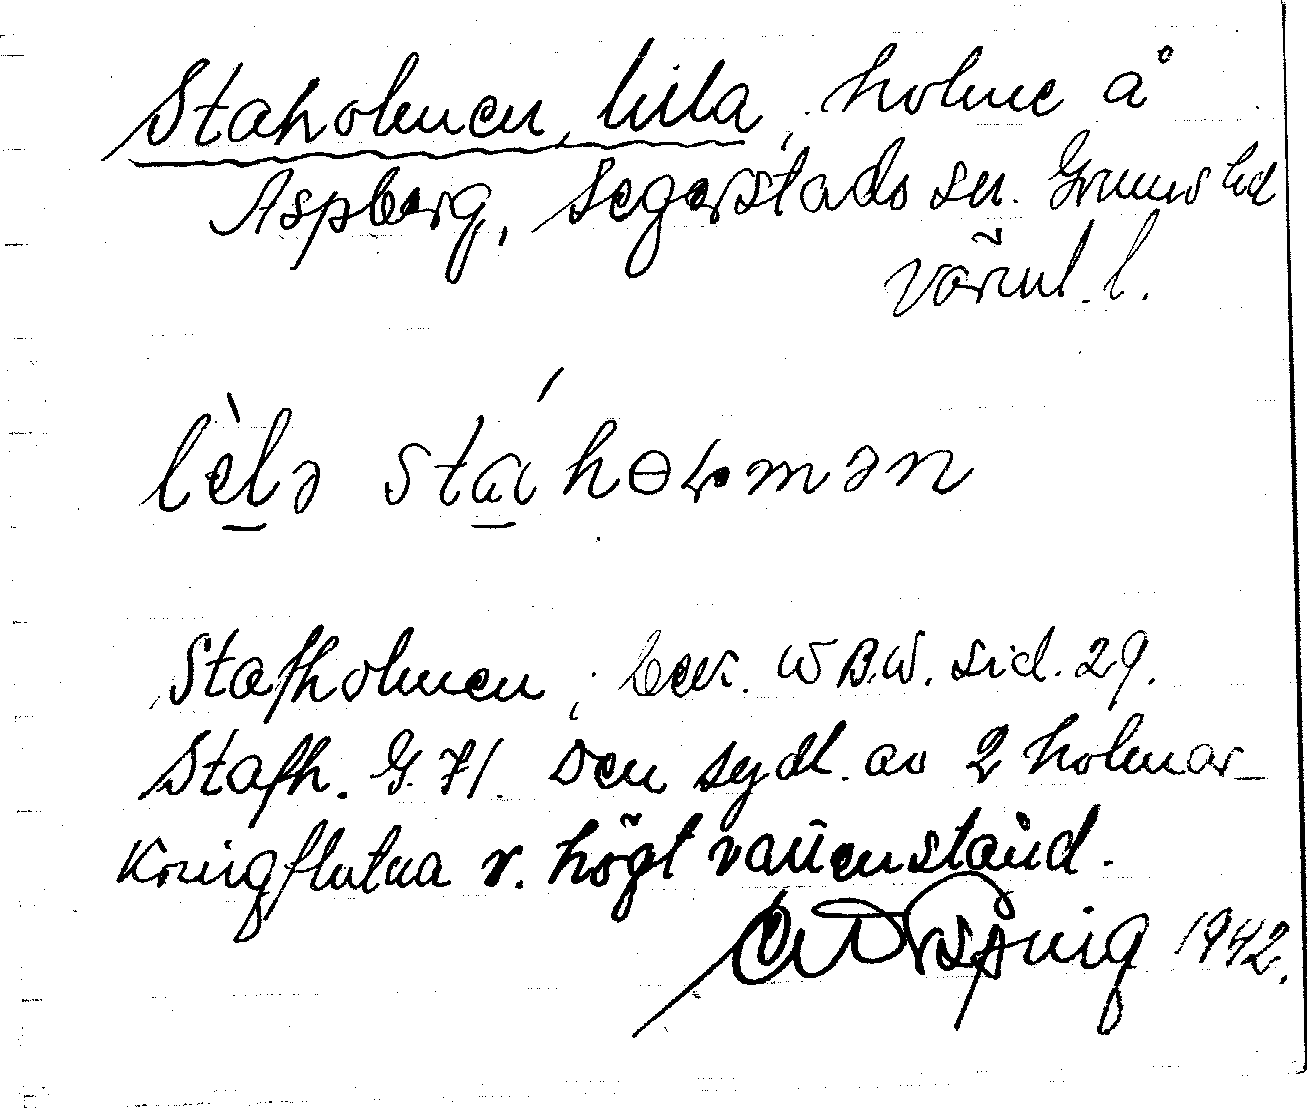 Staholmen, lilla, holme å
Aspberg, Segerstads sn. Grums hd
Värml. l.
lelə sta hɵmən
Stafholmen, W B.W. sid. 29.
Stafh. G. 71. Den sydl. av 2 holmar
Kringflutna v. högt vattenstånd.
1942.